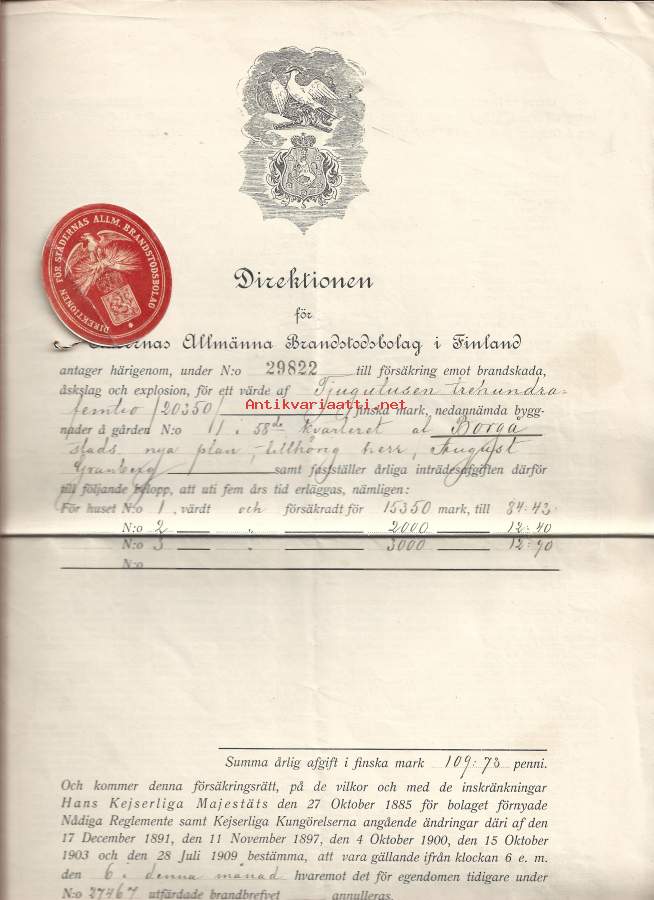 DIREKTIONEN FÖR STÄDERNAS ALLM. BRANDSTODSBOLAG
Direktionen
för
ernas Allmänna Brandstodsbolag i Finland
antager härigenom, under N:o 29822 till försäkring emot brandskada,
åskslag och explosion, för ett värde af Tjugutusen trehundra-
femtio /20350/ finska mark, nedannämda bygg-
Antikvariaatti.net
nader å gården N:o 11 i 58de kvarteret af Borgå
stads nya plan, tillhörig herr August
Granberg samt fastställer årliga inträdesafgiften därför
till följande belopp, att uti fem års tid erläggas, nämligen:
För huset N:o 1, värdt och försäkradt för 15350 mark, till 84:43
N:o 2 " 2000 12:40
N:o 3 " 3000 12:90
N:o
Summa årlig afgift i finska mark 109:73 penni.
Och kommer denna försäkringsrätt, på de vilkor och med de inskränkningar
Hans Kejserliga Majestäts den 27 Oktober 1885 för bolaget förnyade
Nådiga Reglemente samt Kejserliga Kungörelserna angående ändringar däri af den
17 December 1891, den 11 November 1897, den 4 Oktober 1900, den 15 Oktober
1903 och den 28 Juli 1909 bestämma, att vara gällande ifrån klockan 6 e. m.
den 6 i denna månad hvaremot det för egendomen tidigare under
N:o 27467 utfärdade brandbrefvet annulleras.